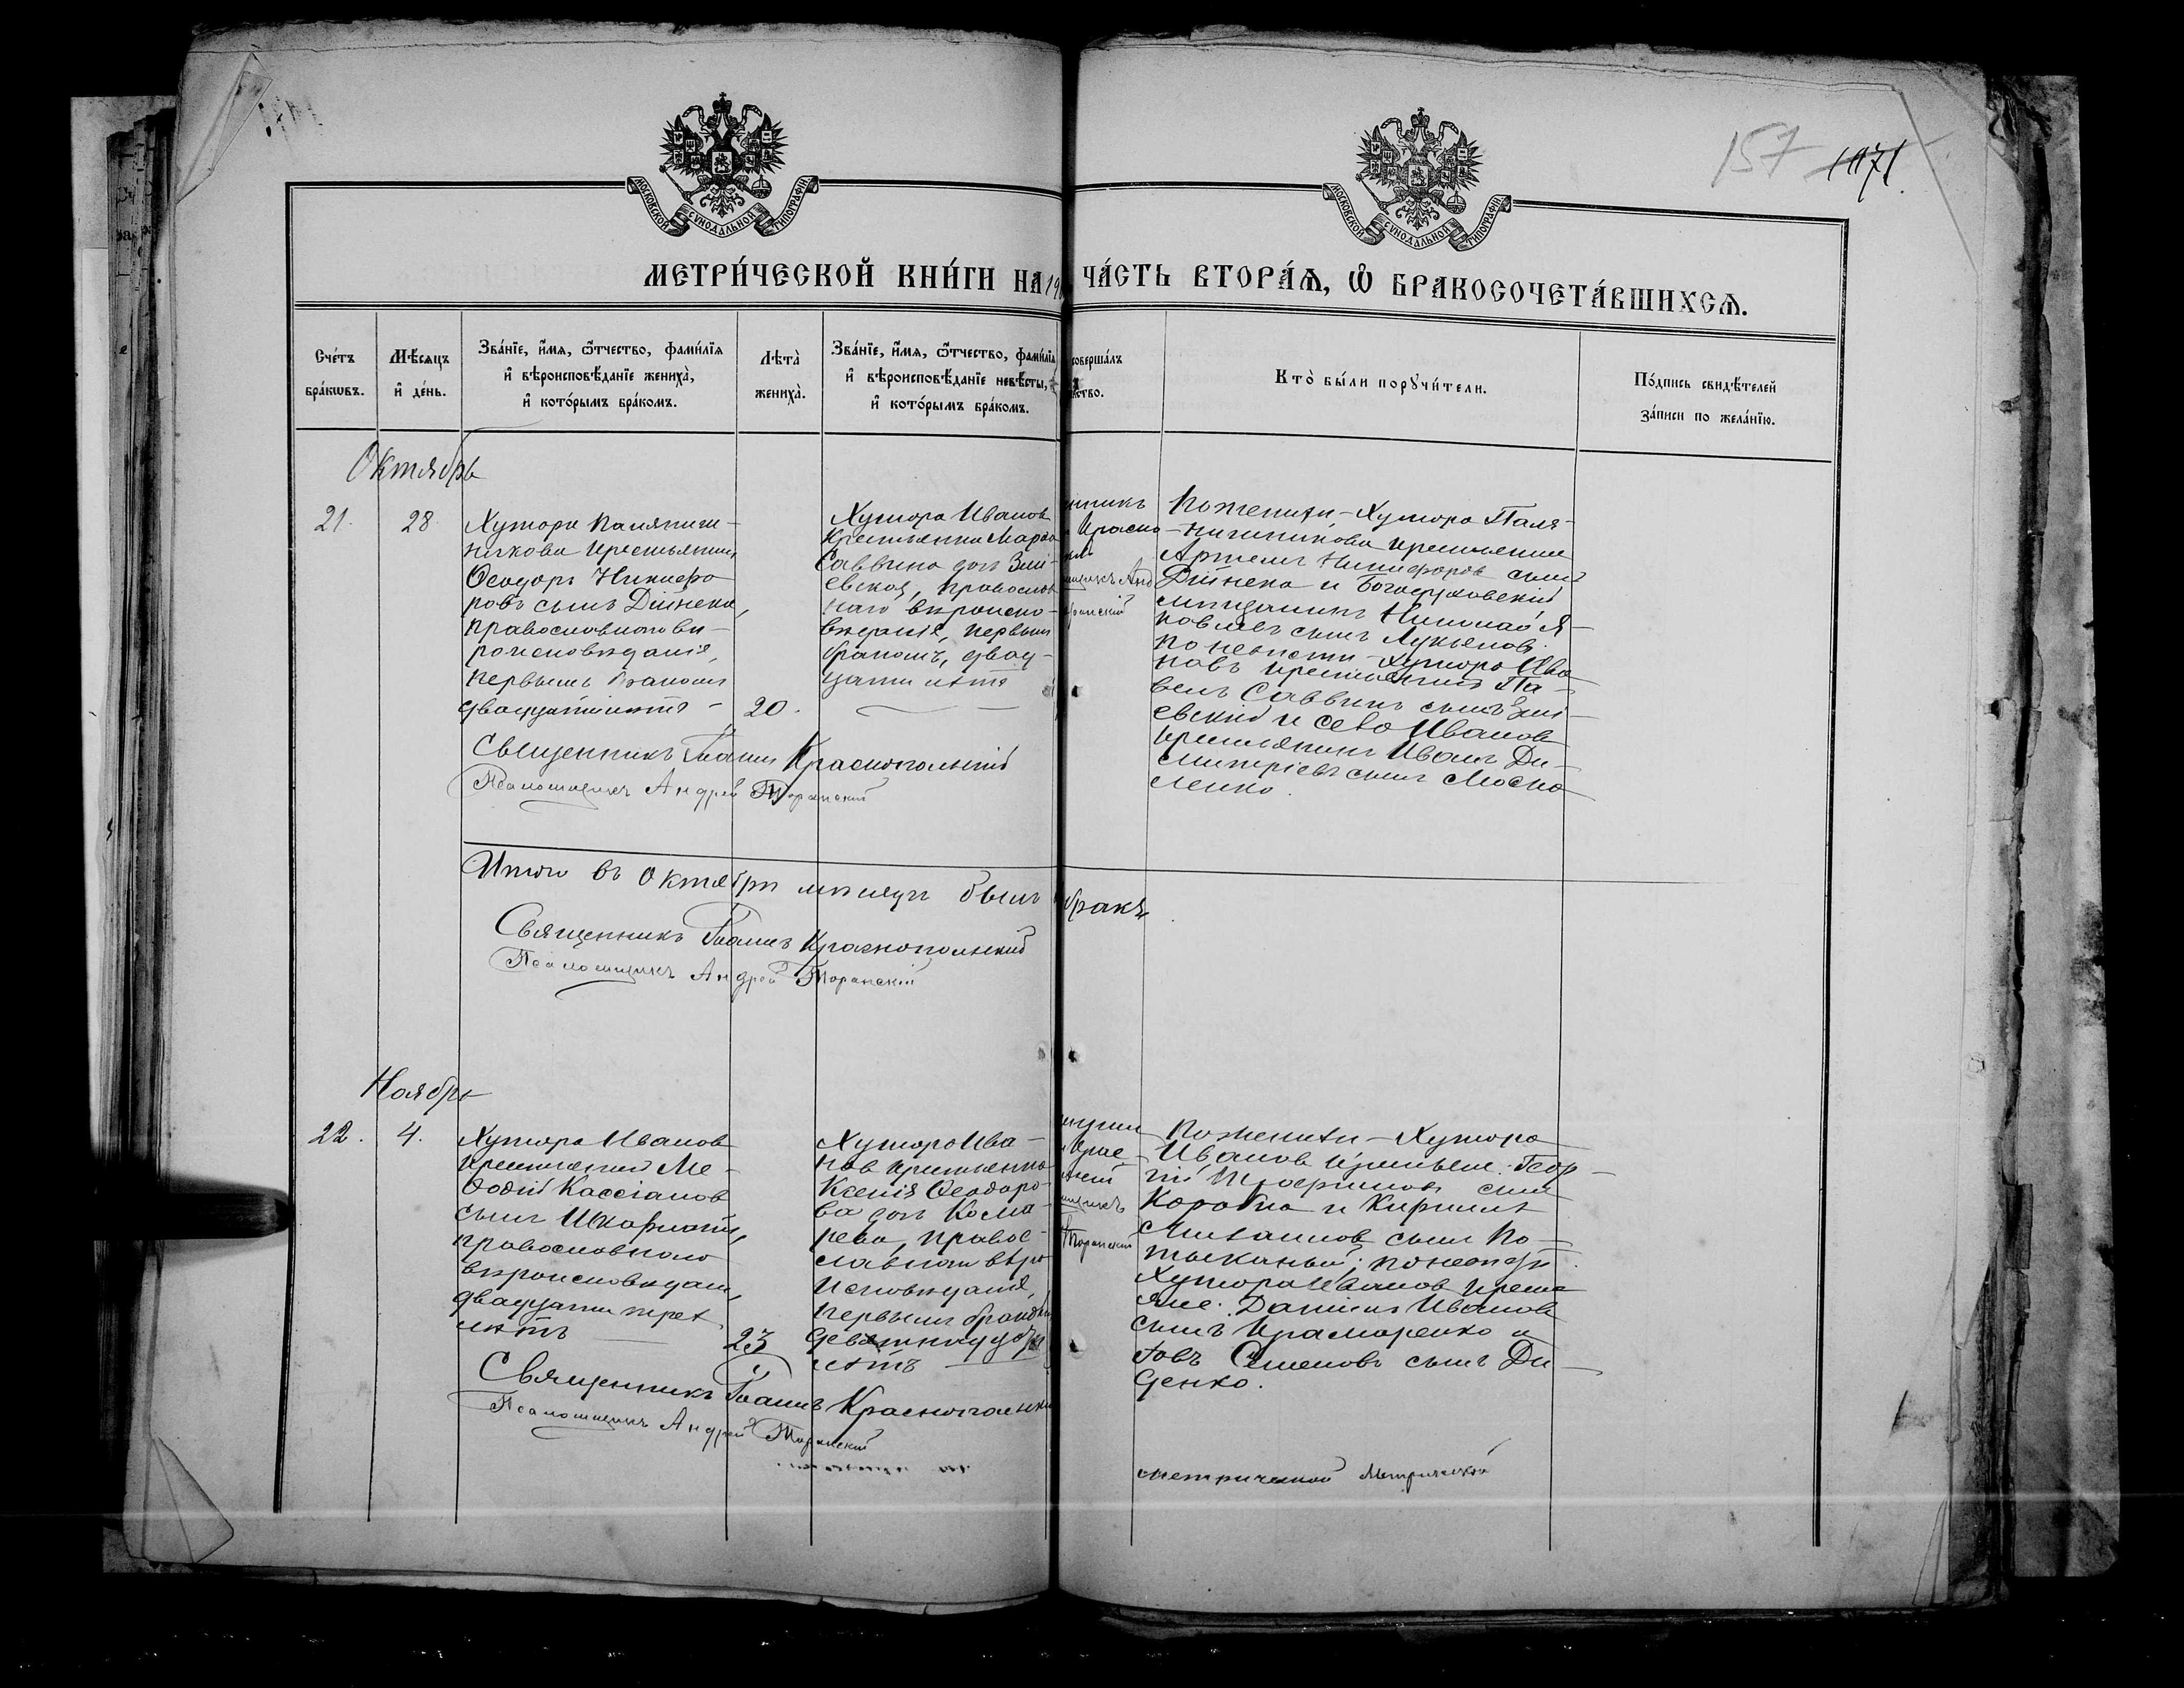 157 1071
МОСКОВСКОЙ СѴНОДАЛЬНОЙ ТИПОГРАФІИ
МОСКОВСКОЙ СѴНОДАЛЬНОЙ ТИПОГРАФІИ
МЕТРИ́ЧЕСКОЙ КНИ́ГИ НА 19 ЧА́СТЬ ВТОРА́Ѧ, Ѽ БРАКОСОЧЕТА́ВШИХСѦ.
Сче́тъ
бра́кѡвъ.
Мѣ́сяцъ
и҆ де́нь.
Зва́нїе, и҆́мя, ѻ҆́тчество, фами́лїя
и҆ вѣроисповѣ́данїе жениха̀,
и҆ кото́рымъ бра́комъ.
Лѣта̀
жениха̀.
Зва́нїе, и҆́мя, ѻ҆́тчество, фами́лїя
и҆ вѣроисповѣ́данїе невѣ́сты,
и҆ кото́рымъ бра́комъ.
соверша́лъ
ство.
Кто̀ бы́ли порꙋчи́тели.
По́дпись свидѣ́телей
за́писи по жела́нїю.
Октябрь
21. 28
Хутора Паляни-
чникова крестьянинъ
Ѳеодоръ Никифо
ровъ сынъ Дійнека,
православнаго вѣ-
роисповѣданія,
первымъ бракомъ
двадцати лѣтъ -
20.
Хутора Иванов
крестьянка Марѳа
Саввина дочь Змі-
евская, православ
наго вѣроиспо-
вѣданія, первым
бракомъ, двад-
цати лѣтъ
нникъ
Красно
Анд
ранскій
По женихѣ - Хутора Паля-
ничникова крестьяне
Артемъ Никифоровъ сынъ
Дійнека и Богодуховскій
мѣщанинъ Николай Я-
ковлевъ сынъ Лукьянов.
по невѣсти - Хутора Ива
новъ крестьянинъ Па-
велъ Саввинъ сынъ Змі-
евскій и села Иванов
крестьянинъ Иванъ Ди-
митріевъ сынъ Моска
ленко.
Священникъ Іоаннъ Краснопольскій
Псаломщикъ Андрей Торанскій
Итого въ Октябрѣ мѣсяцѣ былъ бракъ.
Священникъ Іоаннъ Краснопольскій
Псаломщикъ Андрей Торанскій
Ноябрь
22. 4.
Хутора Иванов
крестьянинъ Ме-
ѳодій Кассіанов
сынъ Шкарлатъ,
православнаго
вѣроисповѣдан,
двадцати трех
лѣтъ
23
Хутора Ива-
нов крестьянка
Ксенія Ѳеодоро-
ва дочь Кома-
рева, правос-
лавнаго вѣро
исповѣданія,
первымъ бракомъ
девятнадцати
лѣтъ
Крас
щикъ
Торанскій
По женихѣ - Хутора
Иванов крестьяне. Геор-
гій Трофимовъ сынъ
Коробка и Кириллъ
Михаиловъ сынъ По-
тыканый; по невѣстѣ
Хутора Иванов кресть
яне. Даніилъ Иванов
сынъ Крамаренко и
Іовъ Семеновъ сынъ Ди-
денко.
Священникъ Іоаннъ Краснопольскій
Псаломщикъ Андрей Торанскій
метрической Метрической